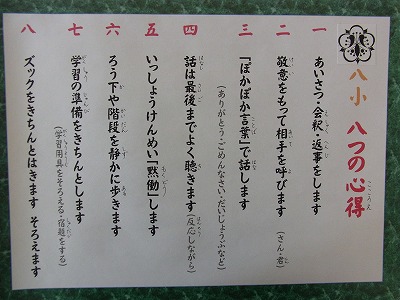 八小 八つの心得
一 あいさつ・会釈・返事をします
二 敬意をもって相手を呼びます(さん・君)
三 「ぽかぽか言葉」で話します
(ありがとう・ごめんなさい・だいじょうぶなど)
四 話は最後までよく聴きます(反応しながら)
五 いっしょうけんめい「黙働」します
六 ろう下や階段を静かに歩きます
七 学習の準備をきちんとします
(学習用具をそろえる・宿題をする)
八 ズックをきちんとはきます そろえます